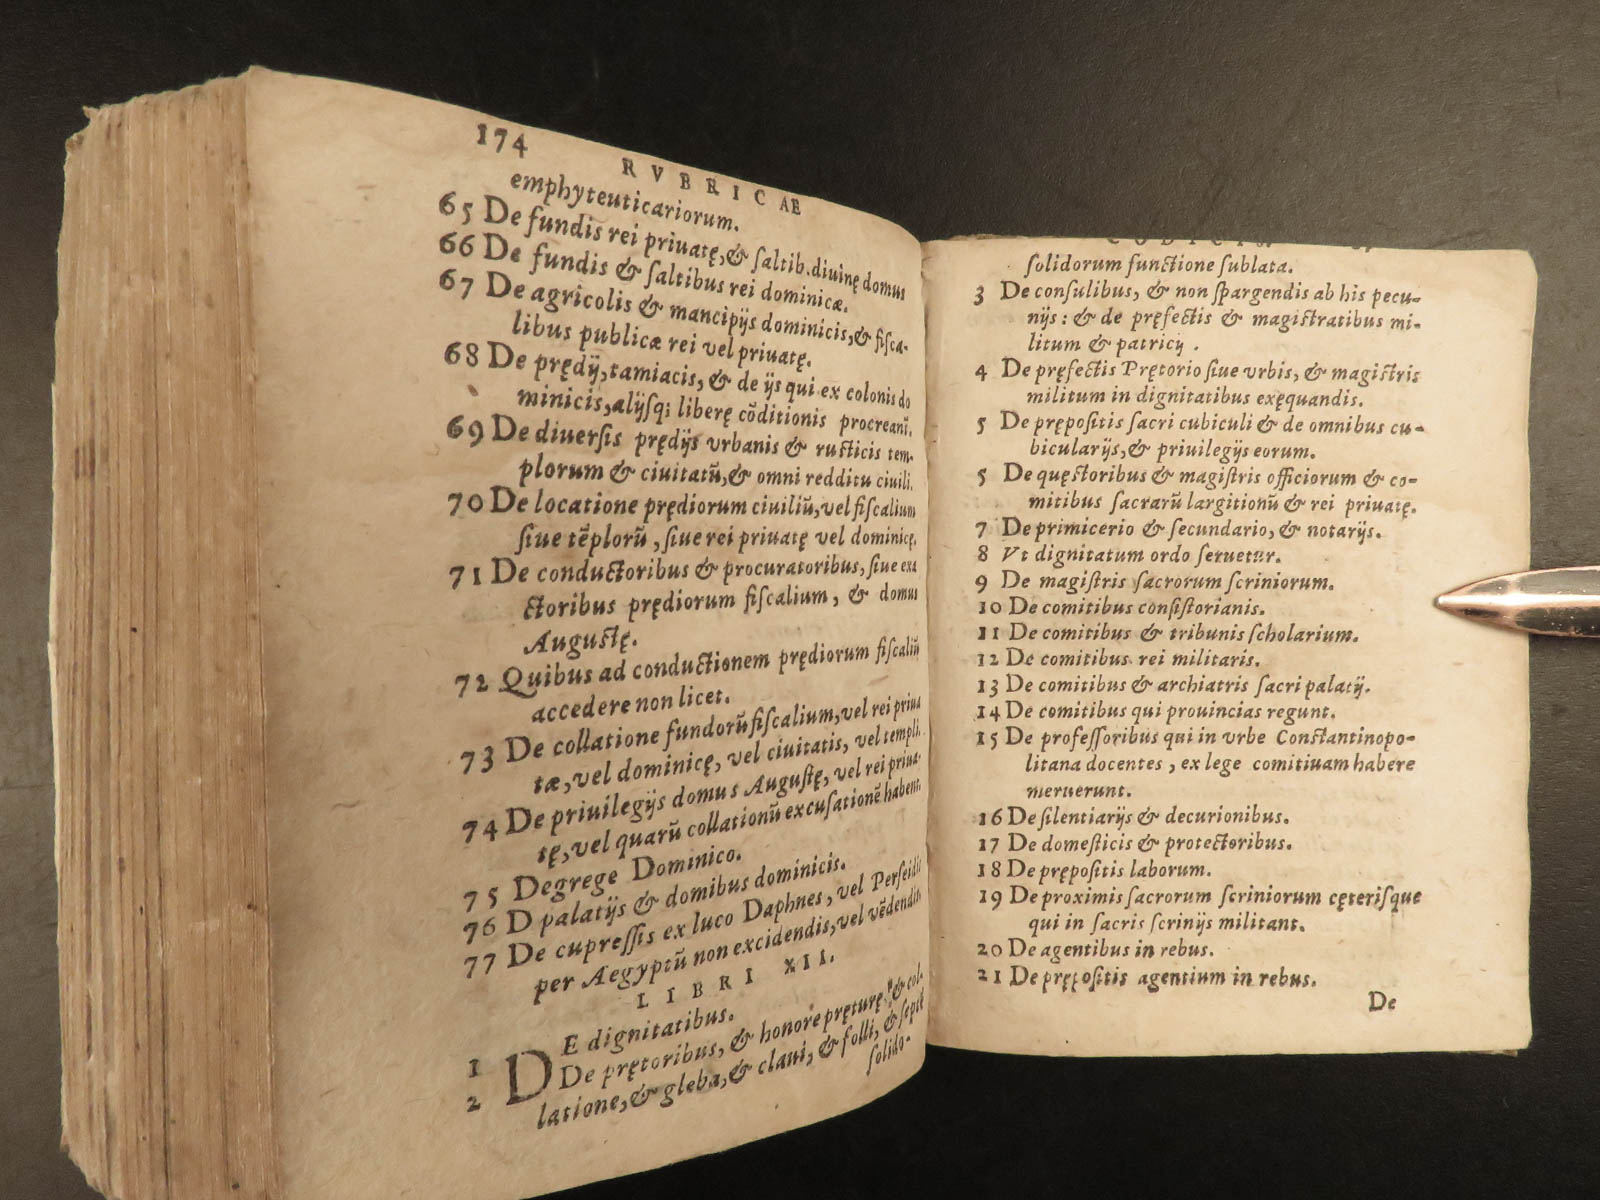 174
RVBRICAE
emphyteuticariorum.
65 De fundis rei priuatę, & ſaltib. diuinę domus
66 De fundis & ſaltibus rei dominicæ.
67 De agricolis & mancipijs dominicis, & fiſca-
libus publicæ rei vel priuatę.
68 De prędij, tamiacis, & de ijs qui ex colonis do
minicis, alijſq; liberę cõditionis procreanť.
69 De diuerſis prędijs vrbanis & ruſticis tem-
plorum & ciuitatũ, & omni redditu ciuili.
70 De locatione prędiorum ciuiliũ, vel fiſcalium
ſiue tẽplorũ, ſiue rei priuatę vel dominicę.
71 De conductoribus & procuratoribus, ſiue exa
ctoribus prędiorum fiſcalium, & domus
Auguſtę.
72 Quibus ad conductionem prędiorum fiſcaliũ
accedere non licet.
73 De collatione fundorũ fiſcalium, vel rei priua
tæ, vel dominicę, vel ciuitatis, vel templi.
74 De priuilegijs domus Auguſtę, vel rei priua-
tę, vel quarũ collationũ excuſationẽ habent.
75 De grege Dominico.
76 D palatijs & domibus dominicis.
77 De cupreſſis ex luco Daphnes, vel Perſeidis
per Aegyptũ non excidendis, vel vẽdendis
LIBRI XII.
1 DE dignitatibus.
2 De prętoribus, & honore pręturę, & col-
latione, & gleba, & claui, & folli, & ſeptẽ
ſolido-
CODICIS.
ſolidorum functione ſublata.
3 De conſulibus, & non ſpargendis ab his pecu-
nijs: & de pręfectis & magiſtratibus mi-
litum & patricij.
4 De pręfectis Prętorio ſiue vrbis, & magiſtris
militum in dignitatibus exęquandis.
5 De prępoſitis ſacri cubiculi & de omnibus cu-
bicularijs, & priuilegijs eorum.
5 De quęſtoribus & magiſtris officiorum & co-
mitibus ſacrarũ largitionũ & rei priuatę.
7 De primicerio & ſecundario, & notarijs.
8 Vt dignitatum ordo ſeruetur.
9 De magiſtris ſacrorum ſcriniorum.
10 De comitibus conſiſtorianis.
11 De comitibus & tribunis ſcholarium.
12 De comitibus rei militaris.
13 De comitibus & archiatris ſacri palatij.
14 De comitibus qui prouincias regunt.
15 De profeſſoribus qui in vrbe Conſtantinopo-
litana docentes, ex lege comitiuam habere
meruerunt.
16 De ſilentiarijs & decurionibus.
17 De domeſticis & protectoribus.
18 De prępoſitis laborum.
19 De proximis ſacrorum ſcriniorum cęteriſque
qui in ſacris ſcrinijs militant.
20 De agentibus in rebus.
21 De prępoſitis agentium in rebus.
De